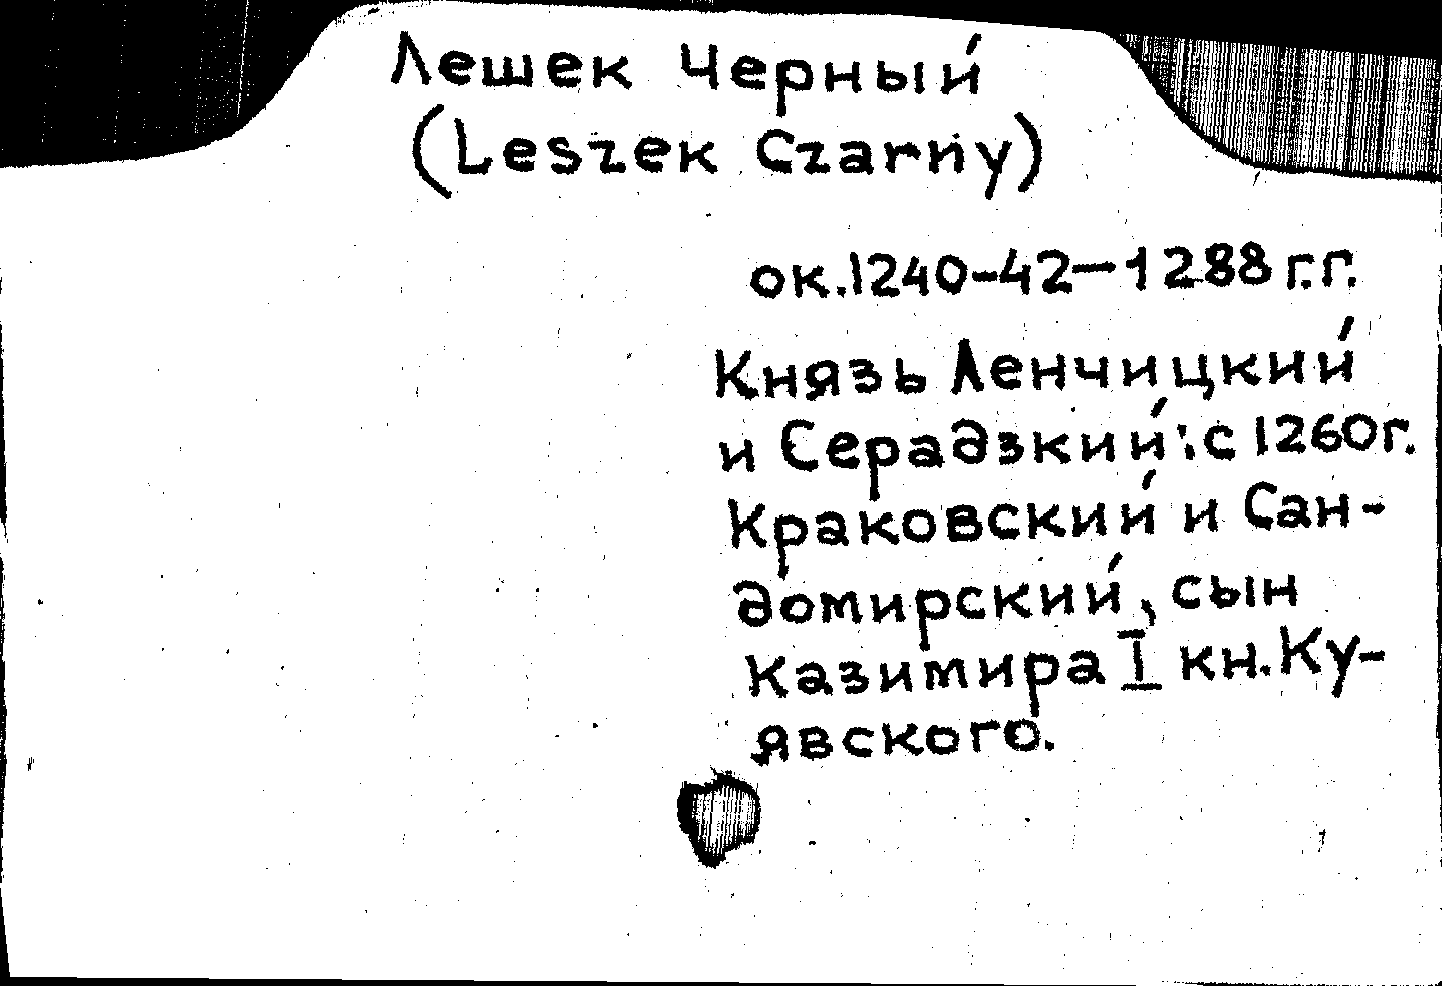 Лешек Черный
(Leszek Czarny)
ок.1240-42—1288 г.г.
Князь Ленчицкий
и Серадзкий: с 1260г.
Краковский и Сан-
домирский, сын
Казимира I кн. Ку-
явского.